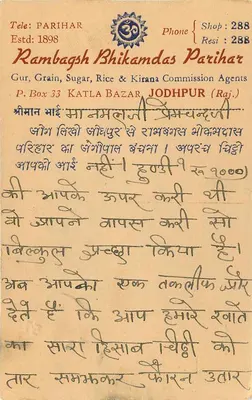 Tele: PARIHAR
Estd: 1898
Phone { Shop : 288
Resi : 288
Rambagsh Bhikamdas Parihar
Gur, Grain, Sugar, Rice & Kirana Commission Agents
P. Box 33 KATLA BAZAR, JODHPUR (Raj.)
श्रीमान भाई मानमलजी प्रेमचन्दजी
जोग लिखी जोधपुर से रामबगस भीकमदास
परिहार का जैगोपाल बंचना ! अपरंच चिट्ठी
आपकी आई नहीं । हुण्डी १ रु १०००)
की आपके ऊपर करी थी
वो आपने वापस करी सो
बिल्कुल अच्छा किया है ।
अब आपको एक तकलीफ और
देते हैं कि आप हमारे खाते
का सारा हिसाब चिट्ठी को
तार समझकर फौरन उतार